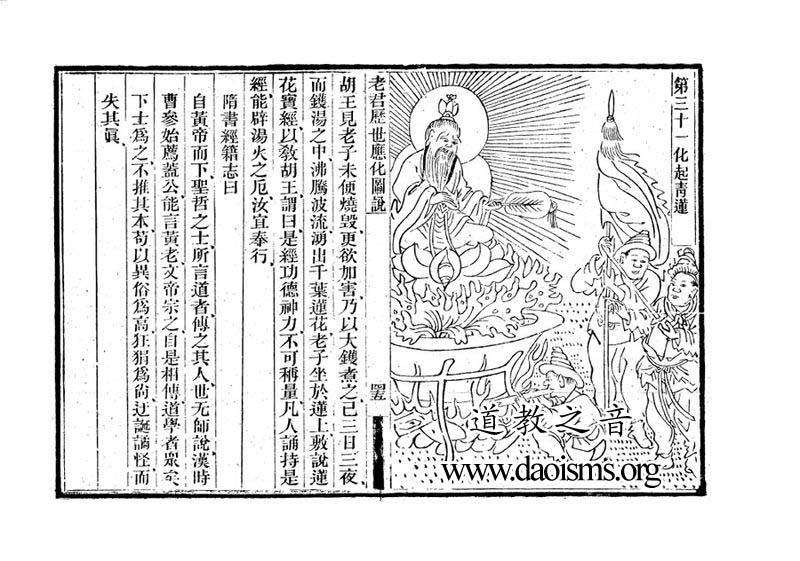 第三十一化起青蓮
老君歷世應化圖說
胡王見老子未便燒毀更欲加害乃以大鑊煮之已三日三夜
而鑊湯之中沸騰波流湧出千葉蓮花老子坐於蓮上敷說蓮
花寶經以敎胡王謂曰是經功德神力不可稱量凡人誦持是
經能辟湯火之厄汝宜奉行
隋書經籍志曰
自黃帝而下聖哲之士所言道者傳之其人世无師說漢時
曹參始薦蓋公能言黃老文帝宗之自是相傳道學者衆矣
下士爲之不推其本苟以異俗爲高狂狷爲尙迂誕譎怪而
失其眞
道教之音
www.daoisms.org